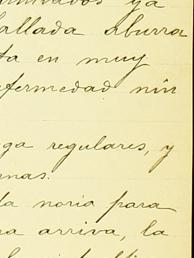 ya
allada aburra
ta en muy
nfermedad nin
ga regulares, y
nas.
la noria para
ra arriva, la